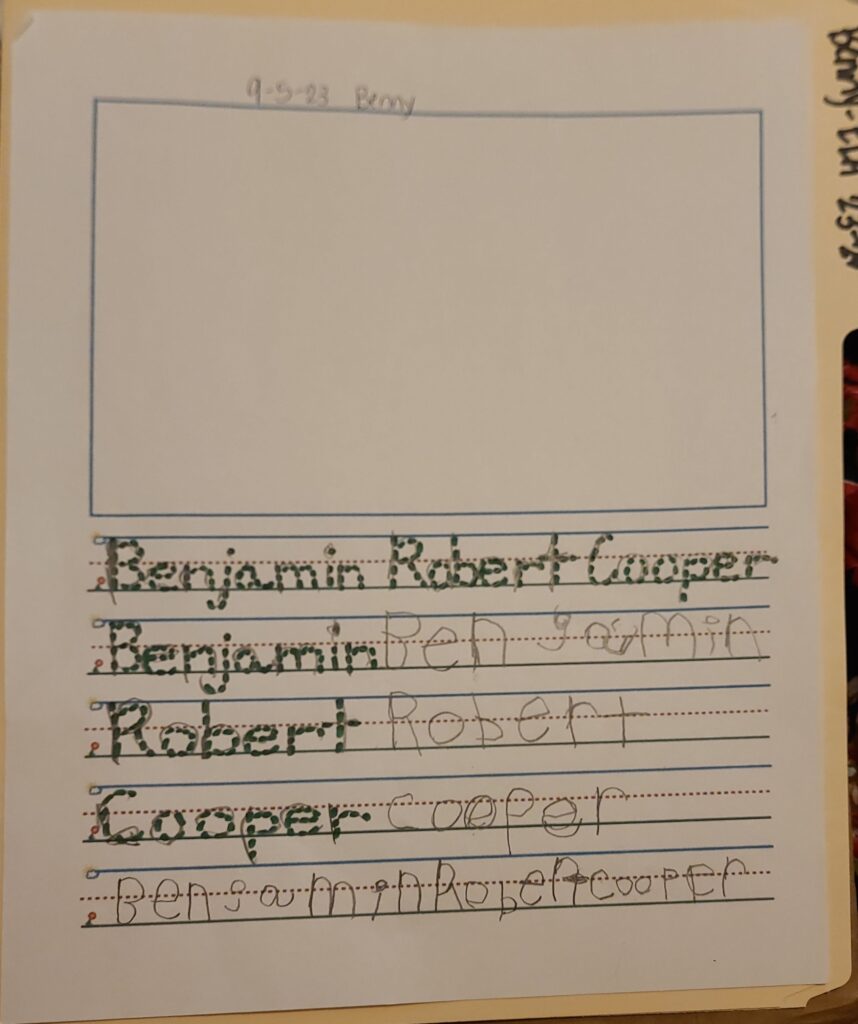 9-5-23 Benny
Benny-ELA 23-24
Benjamin Robert Cooper
Benjamin Benjamin
Robert Robert
Cooper cooper
BenjaminRobertcooper